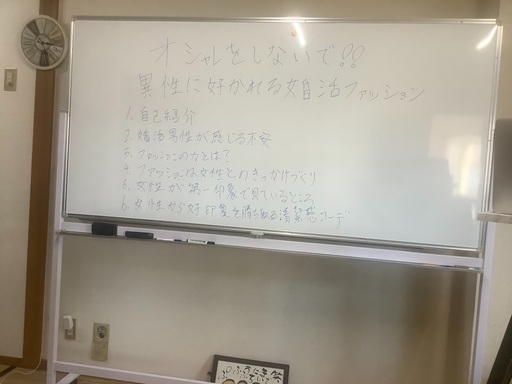 オシャレをしないで!!
異性に好かれる婚活ファッション
1. 自己紹介
2. 婚活男性が感じる不安
3. ファッションの力とは?
4. ファッションは女性とのきっかけづくり
5. 女性が第一印象で見ているところ
6. 女性から好印象を勝ち取る清潔感コーデ